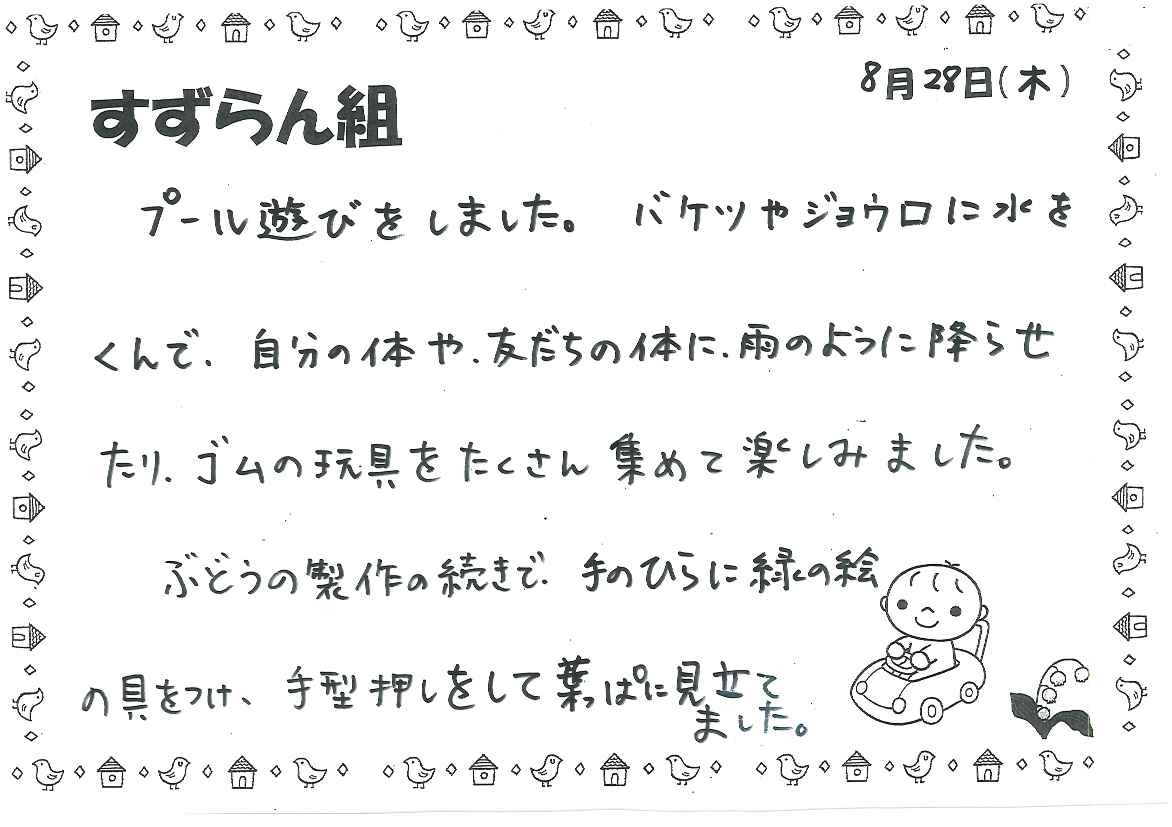 8月28日(木)
すずらん組
プール遊びをしました。 バケツやジョウロに水を
くんで、自分の体や、友だちの体に、雨のように降らせ
たり、ゴムの玩具をたくさん集めて楽しみました。
ぶどうの製作の続きで、手のひらに緑の絵
の具をつけ、手型押しをして葉っぱに見立て
ました。